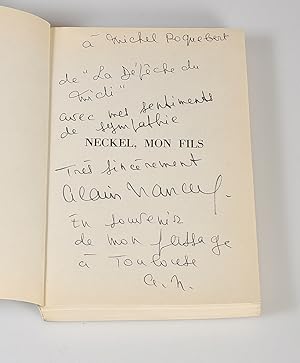 à Michel Roquebert
de "La Dépêche du
Midi"
avec mes sentiments
de sympathie
NECKEL, MON FILS
Très sincèrement
Alain Nancey.
En souvenir
de mon passage
à Toulouse
A. N.